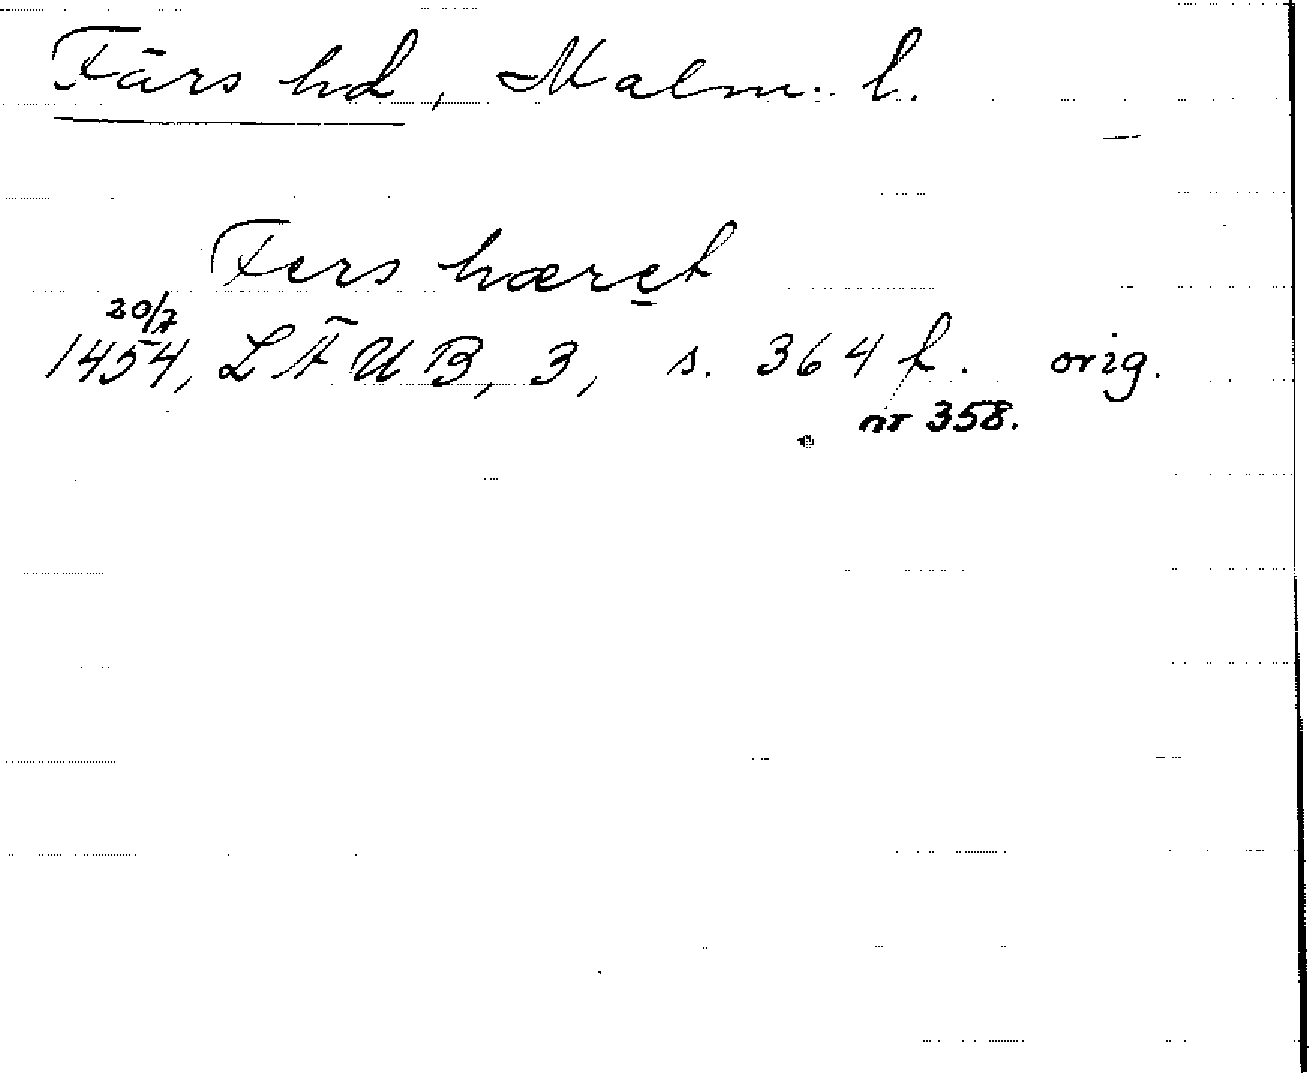 Färs hd, Malm. l.
Fers hæret
20/7
1454, LÄUB, 3, s. 364 f. orig.
nr 358.